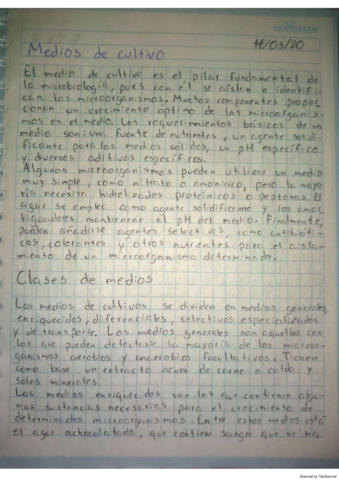 VERSGREEN
14/05/20
Medios de cultivo
El medio de cultivo es el pilar fundamental de
la microbiología, pues con él se aislen e identifi-
can los microorganismos. Muchos componentes propor
cionan un crecimiento óptimo de las microorganis-
mos en el medio. Los requerimientos básicos de un
medio son: una fuente de nutrientes, un agente solidi-
ficante para los medios sólidos, un pH específico
y diversos aditivos específicos.
Algunos microorganismos pueden utilizar un medio
muy simple, como nitrato o amoníaco, pero la mayo
ría necesita hidrolizados proteínicos o peptonas. El
agar se emplea como agente solidificante y los amor
tiguadores mantienene el pH del medio. Finalmente,
pueden añadirse agentes selectivos, como antibióti-
cos, colorantes y otros nutrientes para el aisla-
miento de un microorganismo determinado.
Clases de medios
Los medios de cultivos se dividen en medios generales,
enriquecidos, diferenciales, selectivos especializados
y de transporte. Los medios generales son aquellos con
los que pueden detectarse la mayoría de los microor-
ganismos aerobios y anaerobios facultativos. Tienen
como base un extracto acuos de carne o caldo y
sales minerales.
Los medios enriquecidos son los que contienen algu-
nas sustancias necesarias para el crecimiento de
determinados microorganismos. Entre estos medios está
el agar achocolatado, que contiene sangre que se ha
Scanned by TapScanner